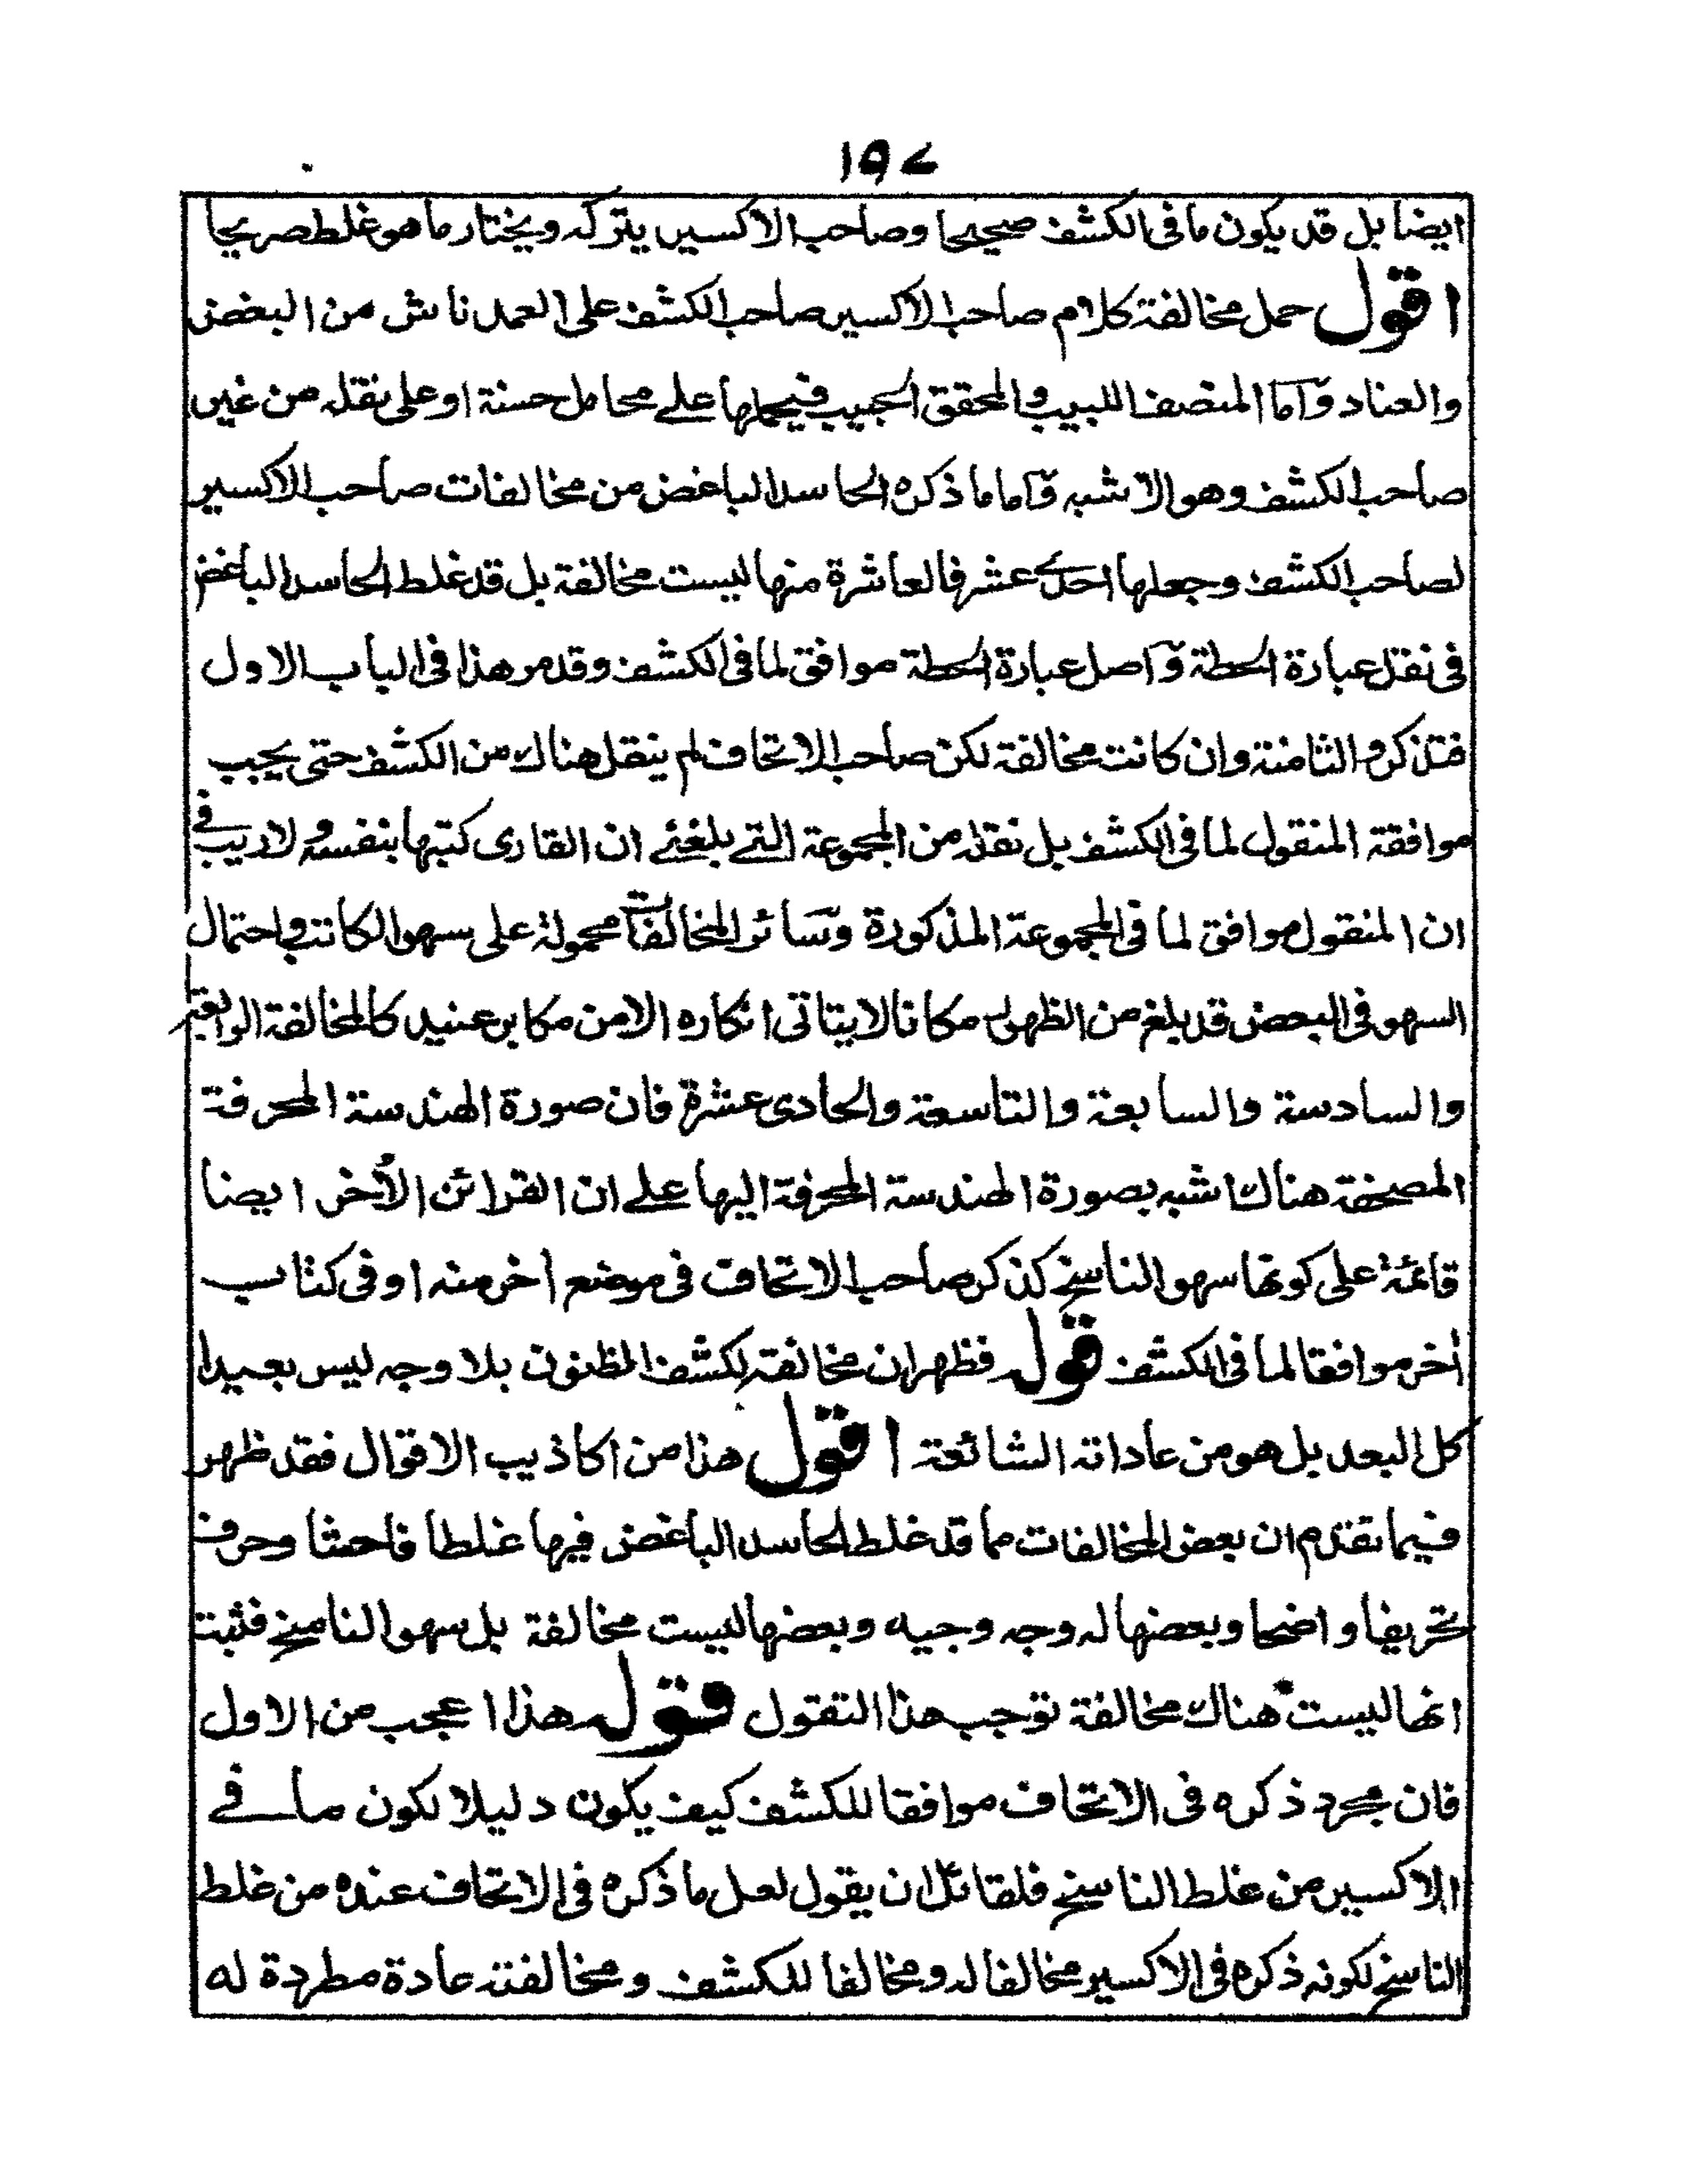 ١٩٧
ايضا بل قد يكون ما فى الكشف صحيحا وصاحب الاكسير يتركه ويختار ما هو غلط صريحا
اقول حمل مخالفة كلام صاحب الاكسير صاحب الكشف على العمد ناش من البغض
والعناد وآما المنصف اللبيب والمحقق الحبيب فيحملها علے محامل حسنة او على نقله من غير
صاحب الكشف وهو الاشبه وآما ما ذكره الحاسد الباغض من مخالفات صاحب الاكسير
لصاحب الكشف وجعلها احدے عشر فالعاشرة منها ليست مخالفة بل قد غلط الحاسد الباغض
فى نقل عبارة الحطة وآصل عبارة الحطة موافق لما فى الكشف وقد مر هذا فى الباب الاول
فتذكره والثامنة وان كانت مخالفة لكن صاحب الاتحاف لم ينقل هناك من الكشف حتى يجب
موافقة المنقول لما فى الكشف بل نقله من المجموعة التے بلغنے ان القارى كتبها بنفسه ولا ريب فے
ان المنقول موافق لما فى المجموعة المذكورة وسائر المخالفات محمولة على سهو الكاتب واحتمال
السهو فى البعض قد بلغ من الظهور مكانا لا يتاتى انكاره الا من مكابر عنيد كالمخالفة الرابعة
والسادسة والسابعة والتاسعة والحادى عشرة فان صورة الهندسة المحرفة
المصحفة هناك اشبه بصورة الهندسة المحرفة اليها علے ان القرائن الأخر ايضا
قائمة على كونها سهو الناسخ كذكر صاحب الاتحاف فى موضع اخر منه او فى كتاب
أخر موافقا لما فى الكشف قوله فظهر ان مخالفته لكشف الظنون بلا وجه ليس بعيدا
كل البعد بل هو من عاداته الشائعة اقول هذا من اكاذيب الاقوال فقد ظهر
فيما تقدم ان بعض المخالفات مما قد غلط الحاسد الباغض فيها غلطا فاحشا وحرف
تحريفا واضحا وبعضها له وجه وجيه وبعضها ليست مخالفة بل سهو الناسخ فثبت
انها ليست هناك مخالفة توجب هذا التقول قوله هذا اعجب من الاول
فان مجرد ذكره فى الاتحاف موافقا للكشف كيف يكون دليلا لكون ما فے
الاكسير من غلط الناسخ فلقائل ان يقول لعل ما ذكره فى الاتحاف عنده من غلط
الناسخ لكونه ذكره فى الاكسير مخالفا له ومخالفا للكشف ومخالفته عادة مطردة له